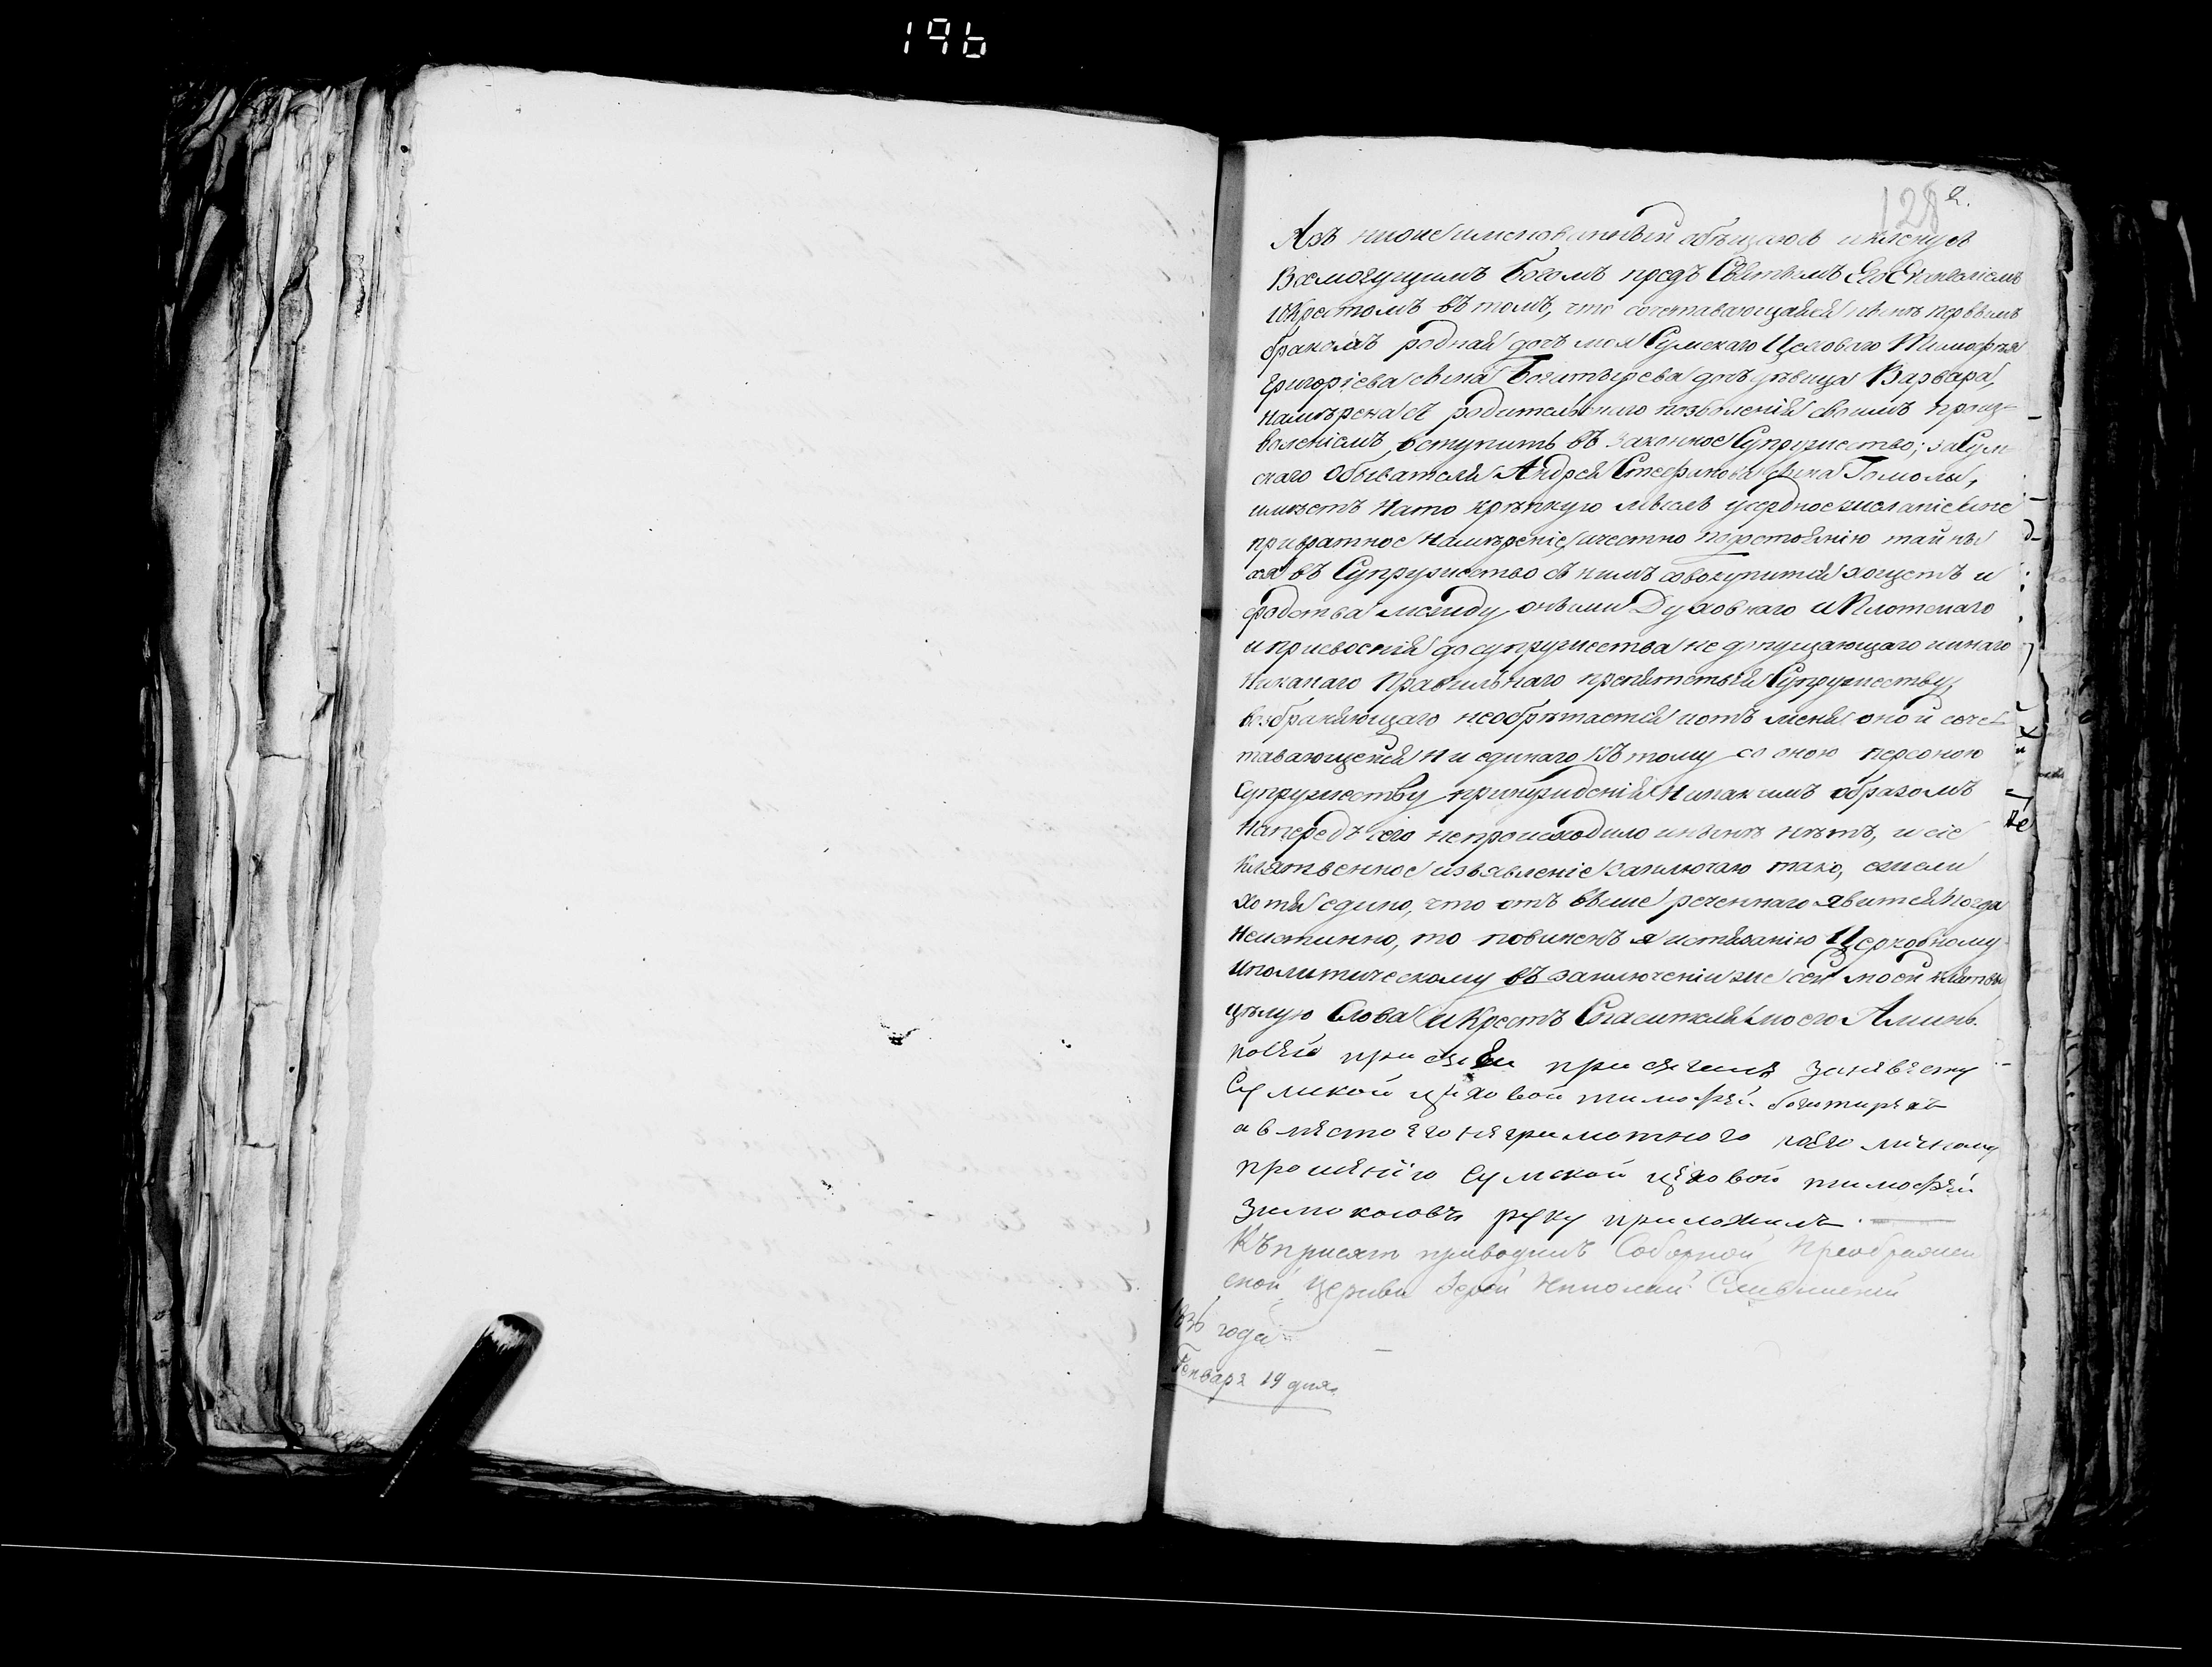 196
128 2.
Азъ нижеименованный обѣщаюсь и кленусь
Всемогущимъ Богомъ предъ Святымъ Его Евангелiемъ
и Крестомъ въ томъ, что сочетавающаяся нынѣ первымъ
бракомъ родная дочь моя Сумскаго Цеховаго Тимофѣя
Григорiева сына Богатырева дочь дѣвица Варвара,
намѣрена съ родительскаго позволенiя своимъ произ-
воленiемъ, вступить въ законное Супружество; за Сум
скаго Обывателя Андрея Стефанова сына Гомолы,
имѣетъ на то крѣпкую мысль усердное желанiе и не
превратное намѣренiе, и честно по достоянiю тайны
сея въ Супружество съ нимъ совокупится хощетъ и
сродства между оными Духовнаго и Плотскаго
и присвоенiя до супружества не допущающаго и инаго
никакаго Правильнаго препятствiя Супружеству,
возбраняющаго не обрѣтается и отъ меня оной соче-
тавающейся ни единаго къ тому со оною персоною
Супружеству принужденiя никакимъ образомъ
напередъ сего не происходило и нынѣ нѣтъ, и сiе
клятвенное изъявленiе заключаю тако, ежели
хотя едино, что отъ выше реченнаго явится когда
неистинно, то повиненъ я истязанiю Церковному
и политическому въ заключенiи же сей моей клятвы
цѣлую Слова и Крестъ Спасителя моего Аминь.
по сей присяги присягалъ
Сумской цеховой тимофей богатиревъ
а вместо его неграмотного по его личному
прошенiю Сумской цеховой тимофей
руку приложилъ.
Къ присягѣ приводилъ Соборной Преображен
ской Церкви Iерей Николай
1836 года
Генваря 19 дня.